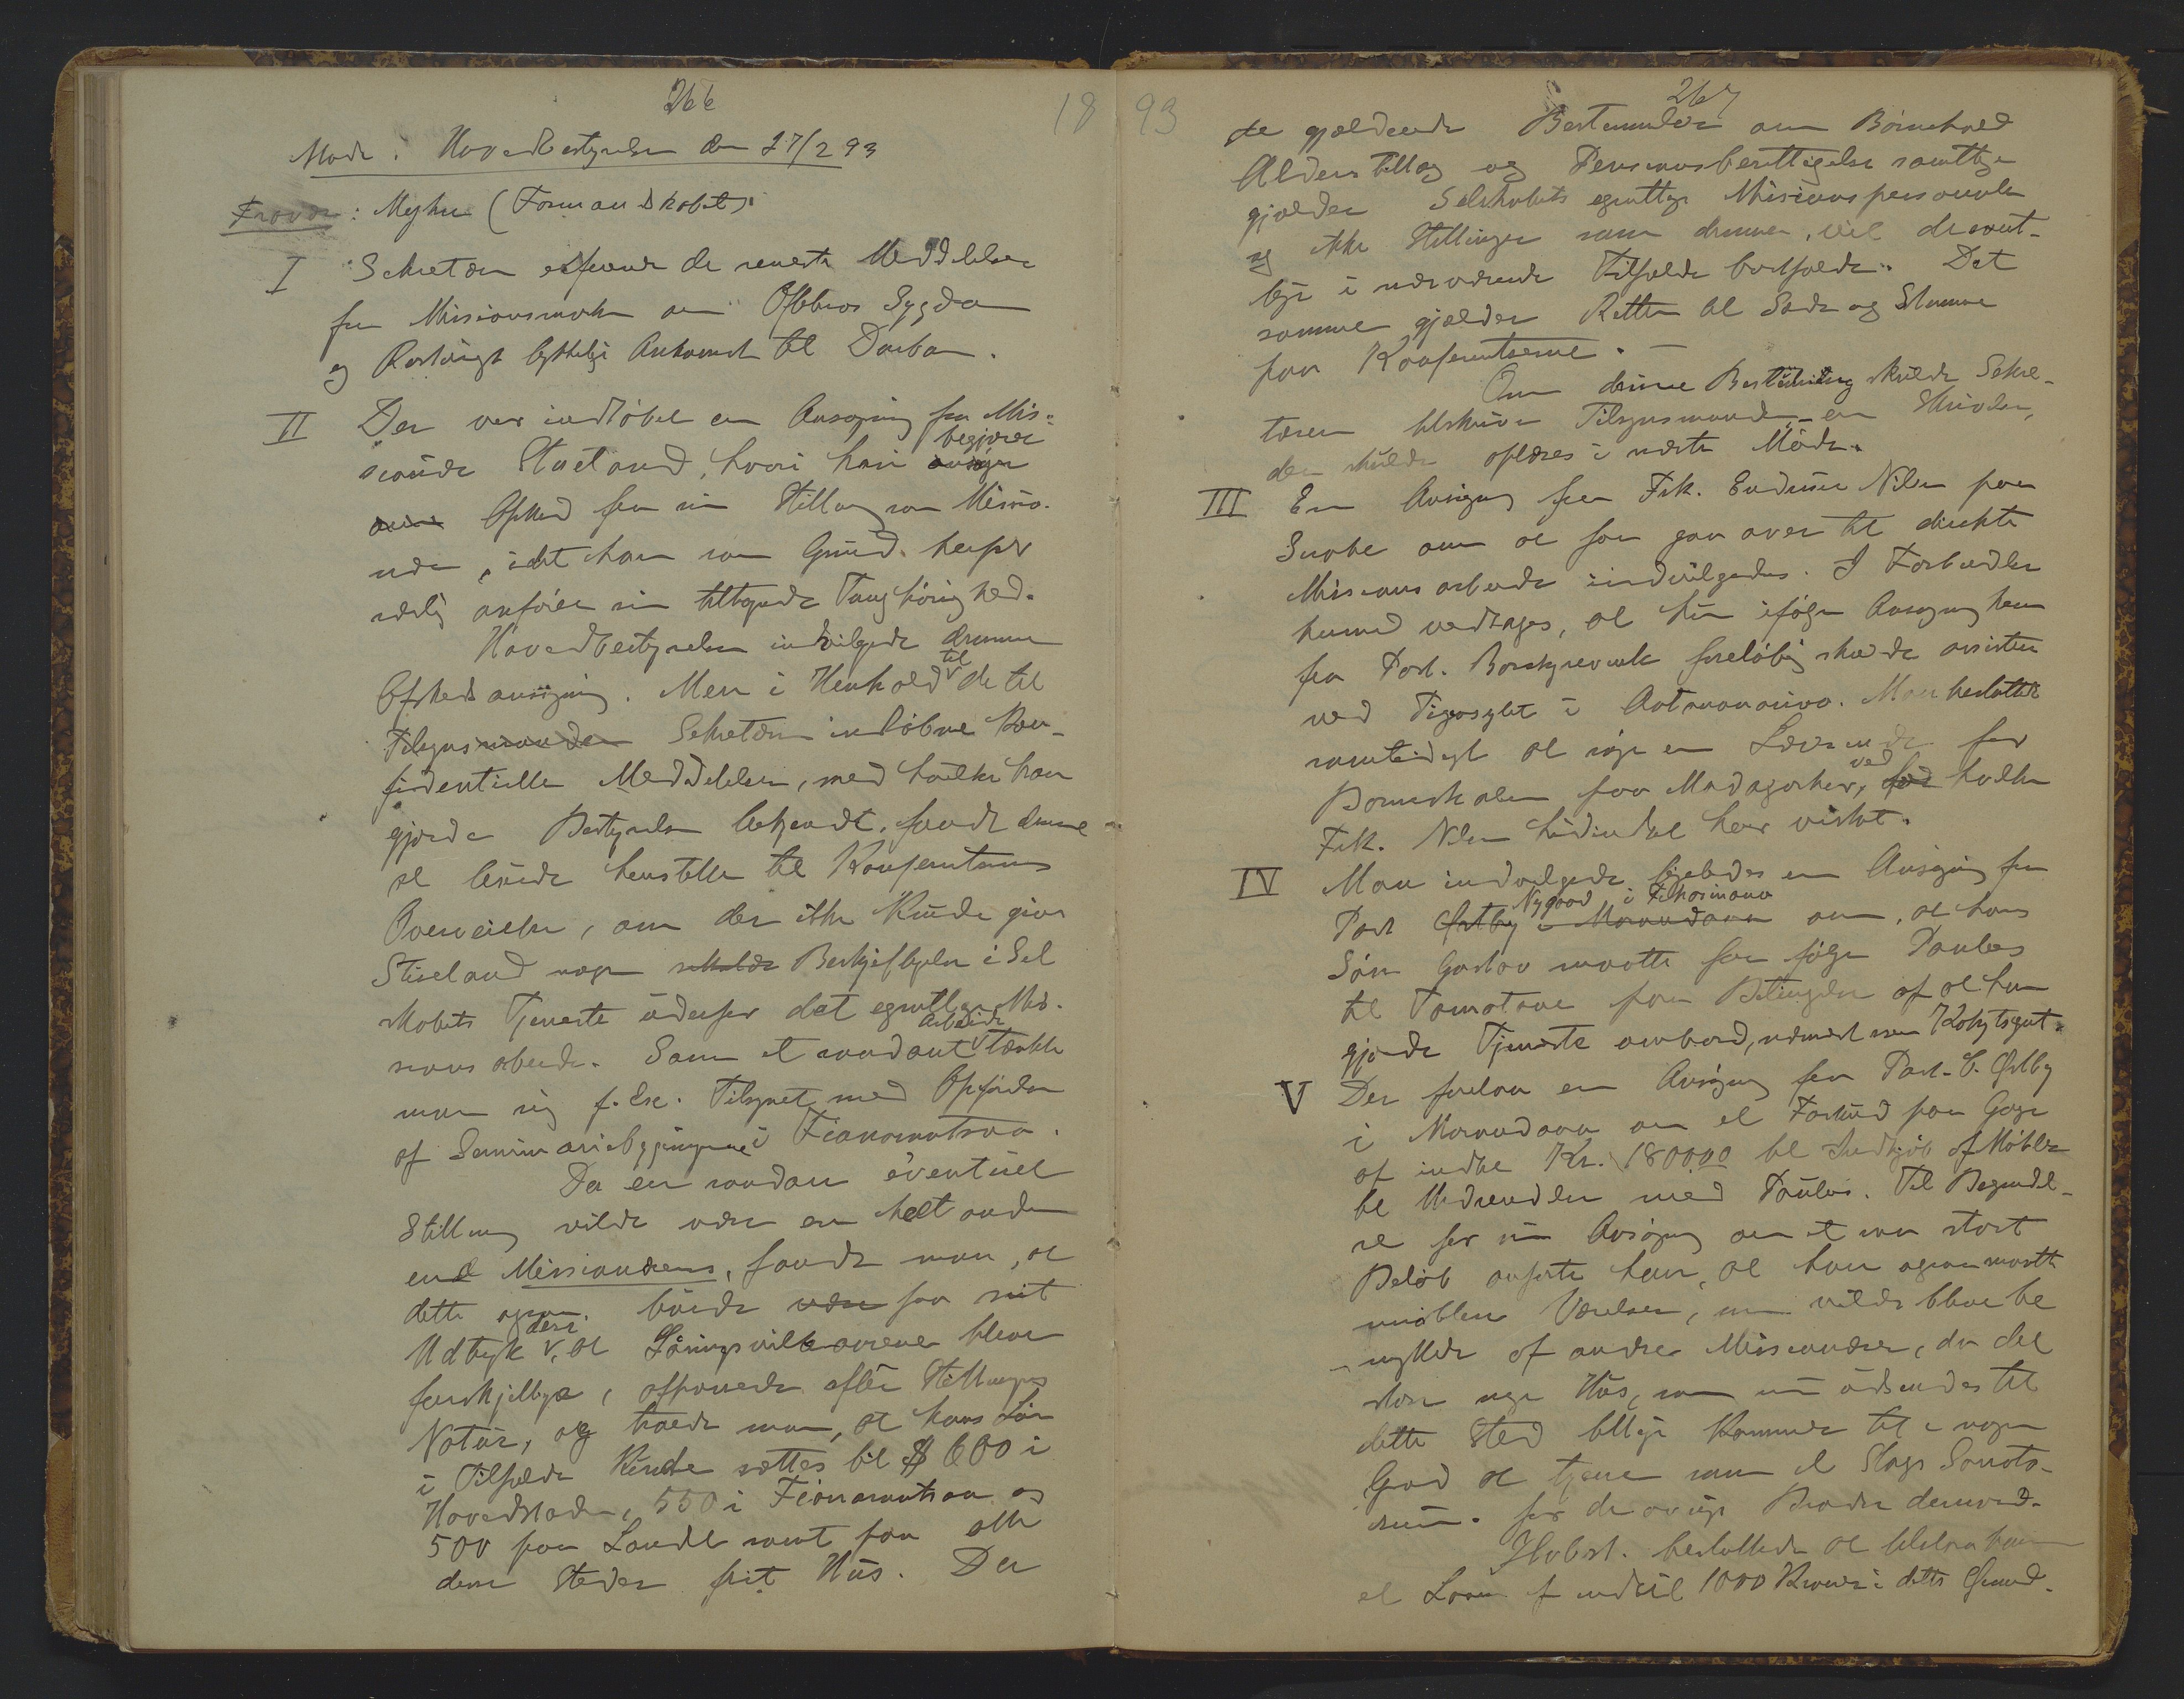 266
18
Møde i Hovedbestyrelsen den 27/2 93
Fravær: Myhre (Formandskabet).
I Sekretæren de seneste Meddelelser
fra Missionsmarken om Oftebros Sygdom
og Rostvigs lykkelige Ankomst til Durban.
II Der var indløbet en Ansøgning fra Mis-
sionær Stueland, hvori han begjærer
Afsked fra sin Stilling som Missio-
nær, idet han som Grund herfor
særlig anfører sin tiltagende Tunghørighed.
Hovedbestyrelsen indvilgede denne
Afskedsansøgning. Men i Henhold til de til
Tilsynsmanden Sekretæren indløbne kon-
fidentielle Meddelelser, med hvilke han
gjorde Bestyrelsen bekjendt, fandt denne
at burde henstille til Konferentsens
Overveielse, om der ikke kunde gives
Stueland nogen Beskjeftigelse i Sel
skabets Tjeneste udenfor det egentlige Mis-
sionsarbeide. Som et saadant Arbeide tænkte
man sig f. Ex. Tilsynet med Opførelsen
af Seminariebygningerne i Fianarantsoa.
Da en saadan eventuel
Stilling vilde være en helt anden
end Missionærens, fandt man, at
dette ogsaa burde faa sit
Udtryk deri, at Lønningsvilkaarene bleve
forskjellige, afpassede efter Stillingens
Natur, og troede man, at hans Løn
i Tilfælde kunde sættes til $ 600 i
Hovedstaden, 550 i Fianarantsoa og
500 paa Landet samt paa alle
disse Steder frit Hus. De
93
267
de gjældende Bestemmelser om Børnehold
Alderstillæg og Pensionsberettigelse samtlige
gjælder Selskabets egentlige Missionspersonale
og ikke Stillinger som denne, vil de
i nærværende Tilfælde bortfalde. Det
samme gjælder Retten til Sæde og Stemme
paa Konferentserne. —
Om denne Beslutning skulde Sekre-
tæren tilskrive Tilsynsmanden en Skrivelse,
der skulde oplæses i næste Møde.
III En Ansøgning fra Frk. Nilsen paa
om at faa gaa over til direkte
Missionsarbeide indvilgedes. I Forbindelse
hermed vedtages, at hun ifølge Ansøgning
fra Past. Borchgrevink foreløbig skulde assistere
ved Pigeasylet i Antananarivo. Man besluttede
samtidigt at søge en Lærerinde for
Barneskolen paa Madagaskar, ved hvilken
Frk. Nilsen hidindtil har virket.
IV Man indvilgede ligeledes en Ansøgning fra
Past Nygaard i Fihasinana om, at hans
Søn Gustav maatte faa følge Paulus
til Tamatave paa Betingelse af at han
gjorde Tjeneste ombord, nærmest som Kahytsgut.
V Der forelaa en Ansøgning fra Past. C. Østby
i Morondava om et Forskud paa Gage
af indtil Kr. 1800.00 til Indkjøb af Møbler
til Udsendelse med Paulus. Til Begrundel-
se for sin Ansøgning om et saa stort
Beløb anførte han, at han ogsaa maatte
møblere Værelser, som vilde blive be
nyttede af andre Missionærer, da det
store nye Hus, som nu udsendes til
dette Sted tillige kommer til i nogen
Grad at tjene som et Slags Sanato-
rium for de øvrige Brødre dernede.
Hvbst. besluttede at tilstaa ham
et Laan af indtil 1000 Kroner i dette Øiemed.